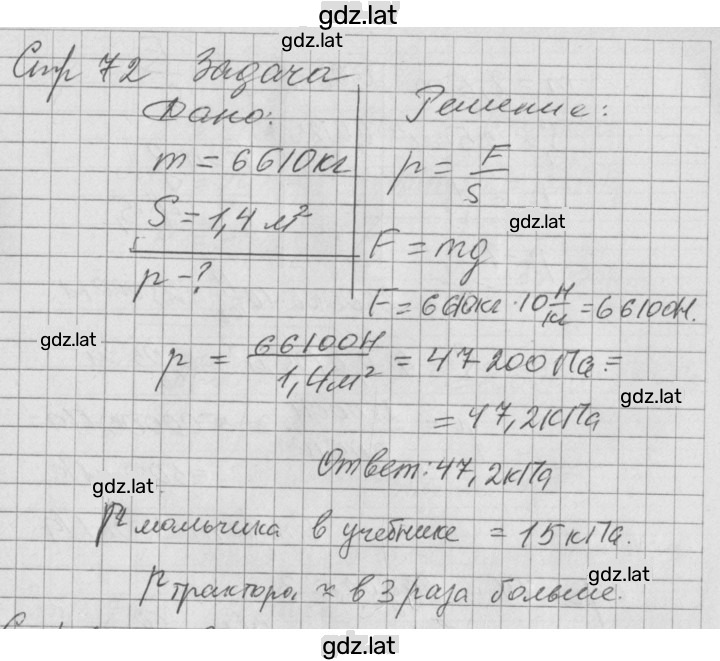 gdz.lat
gdz.lat
Стр 72 Задача
Дано:
m = 6610кг
S = 1,4 м²
p - ?
Решение:
p = F/S
gdz.lat
F = mg
F = 6610кг · 10 Н/кг = 66100Н.
gdz.lat
p = 66100Н/1,4м² = 47200Па =
gdz.lat
= 47,2кПа
Ответ: 47,2кПа
gdz.lat
p мальчика в учебнике = 15кПа.
gdz.lat
p трактора ≈ в 3 раза больше.
gdz.lat